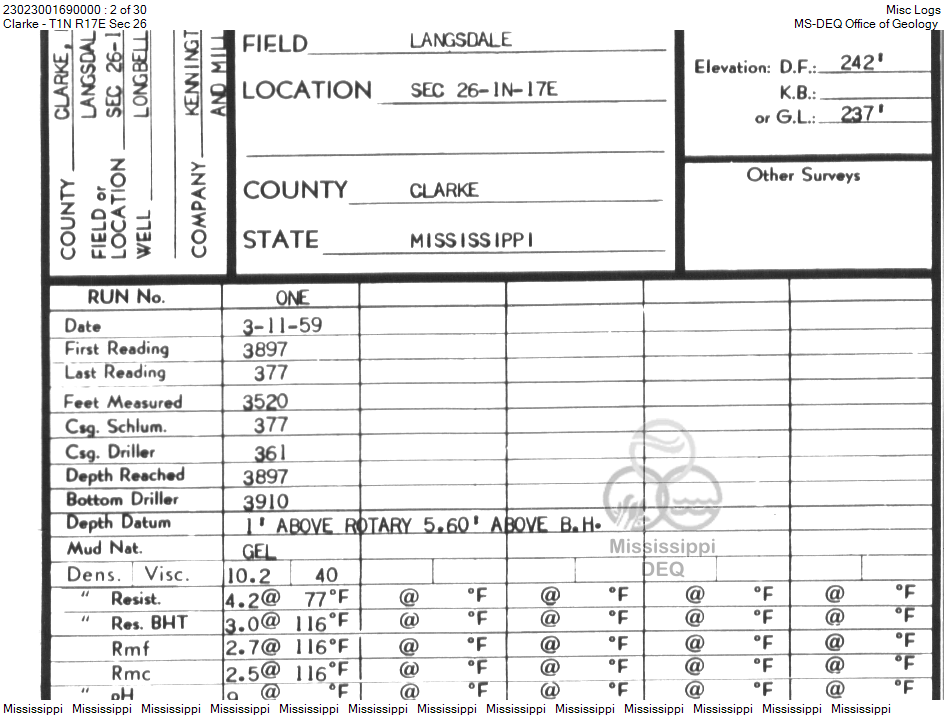 23023001690000 : 2 of 30
Misc Logs
Clarke - T1N R17E Sec 26
MS-DEQ Office of Geology
COUNTY CLARKE,
FIELD or LOCATION LANGSDAL
SEC 26-1
WELL LONGBELL
COMPANY KENNINGT
AND MILL
FIELD LANGSDALE
LOCATION SEC 26-1N-17E
COUNTY CLARKE
STATE MISSISSIPPI
Elevation: D.F.: 242'
K.B.:
or G.L.: 237'
Other Surveys
RUN No. ONE
Date 3-11-59
First Reading 3897
Last Reading 377
Feet Measured 3520
Csg. Schlum. 377
Csg. Driller 361
Depth Reached 3897
Bottom Driller 3910
Depth Datum 1' ABOVE ROTARY 5.60' ABOVE B.H.
Mud Nat. GEL
Dens. Visc. 10.2 40
" Resist. 4.2@ 77°F @ °F @ °F @ °F @ °F
" Res. BHT 3.0@ 116°F @ °F @ °F @ °F @ °F
Rmf 2.7@ 116°F @ °F @ °F @ °F @ °F
Rmc 2.5@ 116°F @ °F @ °F @ °F @ °F
" pH 9 @ °F @ °F @ °F @ °F @ °F
Mississippi
DEQ
Mississippi Mississippi Mississippi Mississippi Mississippi Mississippi Mississippi Mississippi Mississippi Mississippi Mississippi Mississippi Mississippi